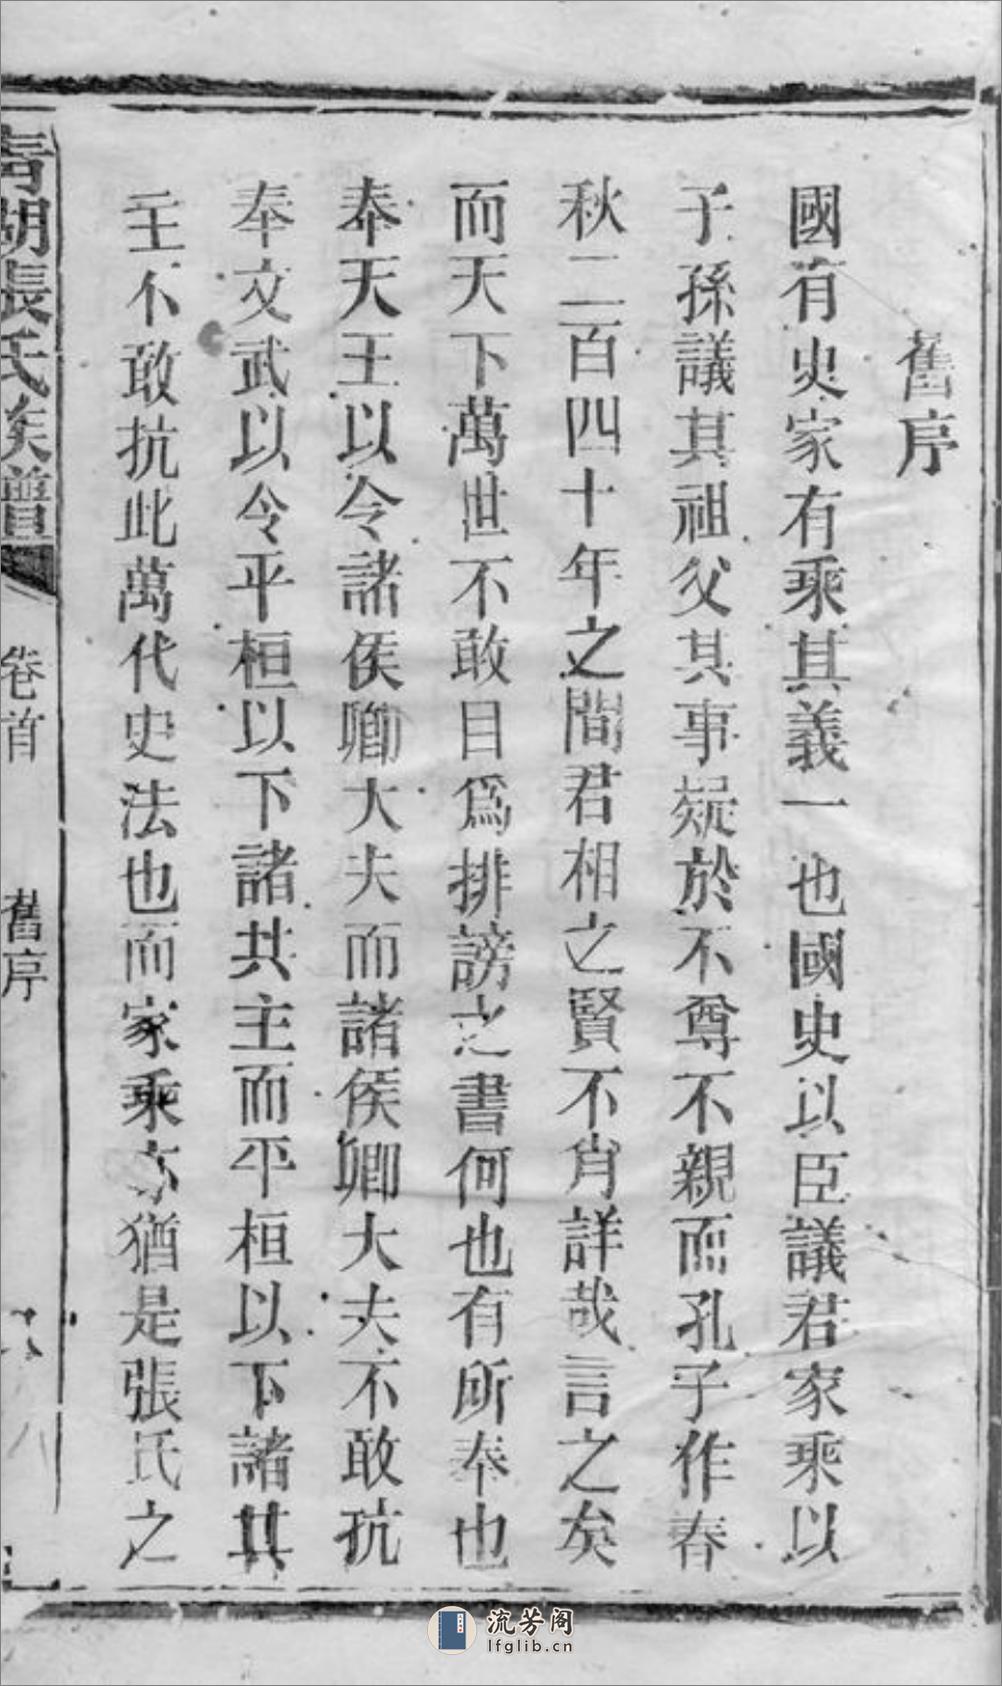 舊序
國有史家有乘其義一也國史以臣議君家乘以
子孫議其祖父其事疑於不尊不親而孔子作春
秋二百四十年之間君相之賢不肖詳哉言之矣
而天下萬世不敢目爲排謗之書何也有所奉也
奉天王以令諸侯卿大夫而諸侯卿大夫不敢抗
奉文武以令平桓以下諸共主而平桓以下諸其
主不敢抗此萬代史法也而家乘亦猶是張氏之
湖張氏族譜
卷首
舊序
流芳阁
lfglib.cn